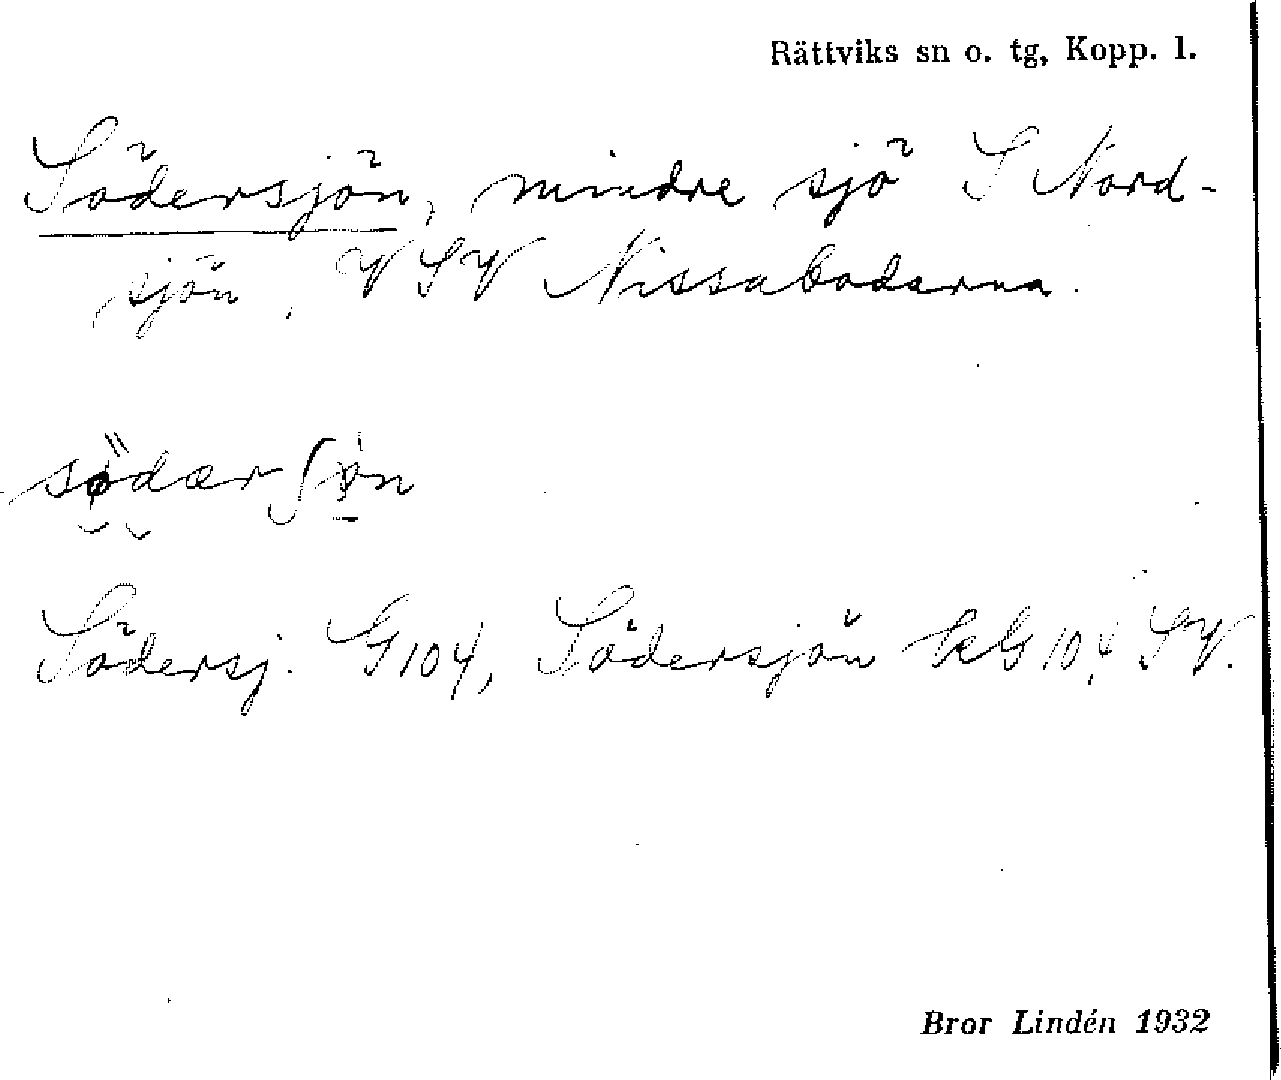 Rättviks sn o. tg, Kopp. l.
Södersjön, mindre sjö S Nord-
sjön, VSV Nissabodarna.
södærʃøn
Södersj. G104, Södersjön kG 104 SV.
Bror Lindén 1932